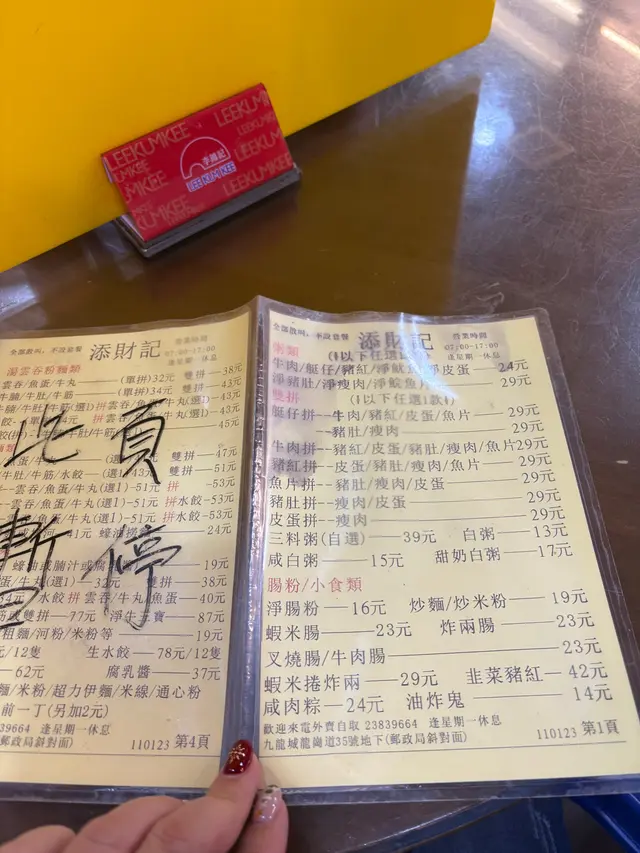 LEEKUMKEE
LEEKUMKEE
李錦記
LEE KUM KEE
LEEKUMKEE
全部散叫，不設套餐
添財記
營業時間
07:00-17:00
逢星期一休息
湯雲吞粉麵類
雲吞/魚蛋/牛丸——(單拼)32元 雙拼—38元
牛腩/牛肚/牛筋——(單拼)34元 雙拼—43元
牛腩/牛肚/牛筋(選1)拼雲吞/魚蛋/牛丸—43元
45元
此頁
暫停
(選1)43元 雙拼—47元
牛肚/牛筋/水餃 雙拼—51元
雲吞/魚蛋/牛丸(選1)—51元 拼 —53元
雲吞/魚蛋/牛丸(選1)—51元 拼水餃—53元
牛丸(選1)—51元 拼水餃—53元
41元 24元
19元
蛋/牛丸(選1)—32元 雙拼—38元
34元 水餃拼雲吞/牛丸/魚蛋—40元
或雙拼—77元 淨牛三寶—87元
粗麵/河粉/米粉等——19元
元/12隻 生水餃—78元/12隻
62元 腐乳醬—37元
麵/米粉/超力伊麵/米線/通心粉
前一丁(另加2元)
逢星期一休息
(郵政局斜對面)
110123 第4頁
全部散叫，不設套餐
添財記
營業時間
07:00-17:00
逢星期一休息
粥類
牛肉/艇仔/豬紅/淨魷魚 皮蛋—24元
淨豬肚/淨瘦肉/淨鯇魚片—29元
雙拼 (以下任選1款)
艇仔拼--牛肉/豬紅/皮蛋/魚片—29元
--豬肚/瘦肉—29元
牛肉拼--豬紅/皮蛋/豬肚/瘦肉/魚片29元
豬紅拼--皮蛋/豬肚/瘦肉/魚片—29元
魚片拼--豬肚/瘦肉/皮蛋—29元
豬肚拼--瘦肉/皮蛋—29元
皮蛋拼--瘦肉—29元
三料粥(自選)—39元 白粥—13元
咸白粥—15元 甜奶白粥—17元
腸粉/小食類
淨腸粉—16元 炒麵/炒米粉—19元
蝦米腸—23元 炸兩腸—23元
叉燒腸/牛肉腸—23元
蝦米捲炸兩—29元 韭菜豬紅—42元
咸肉粽—24元 油炸鬼—14元
歡迎來電外賣自取 23839664 逢星期一休息
九龍城龍崗道35號地下(郵政局斜對面)
110123 第1頁